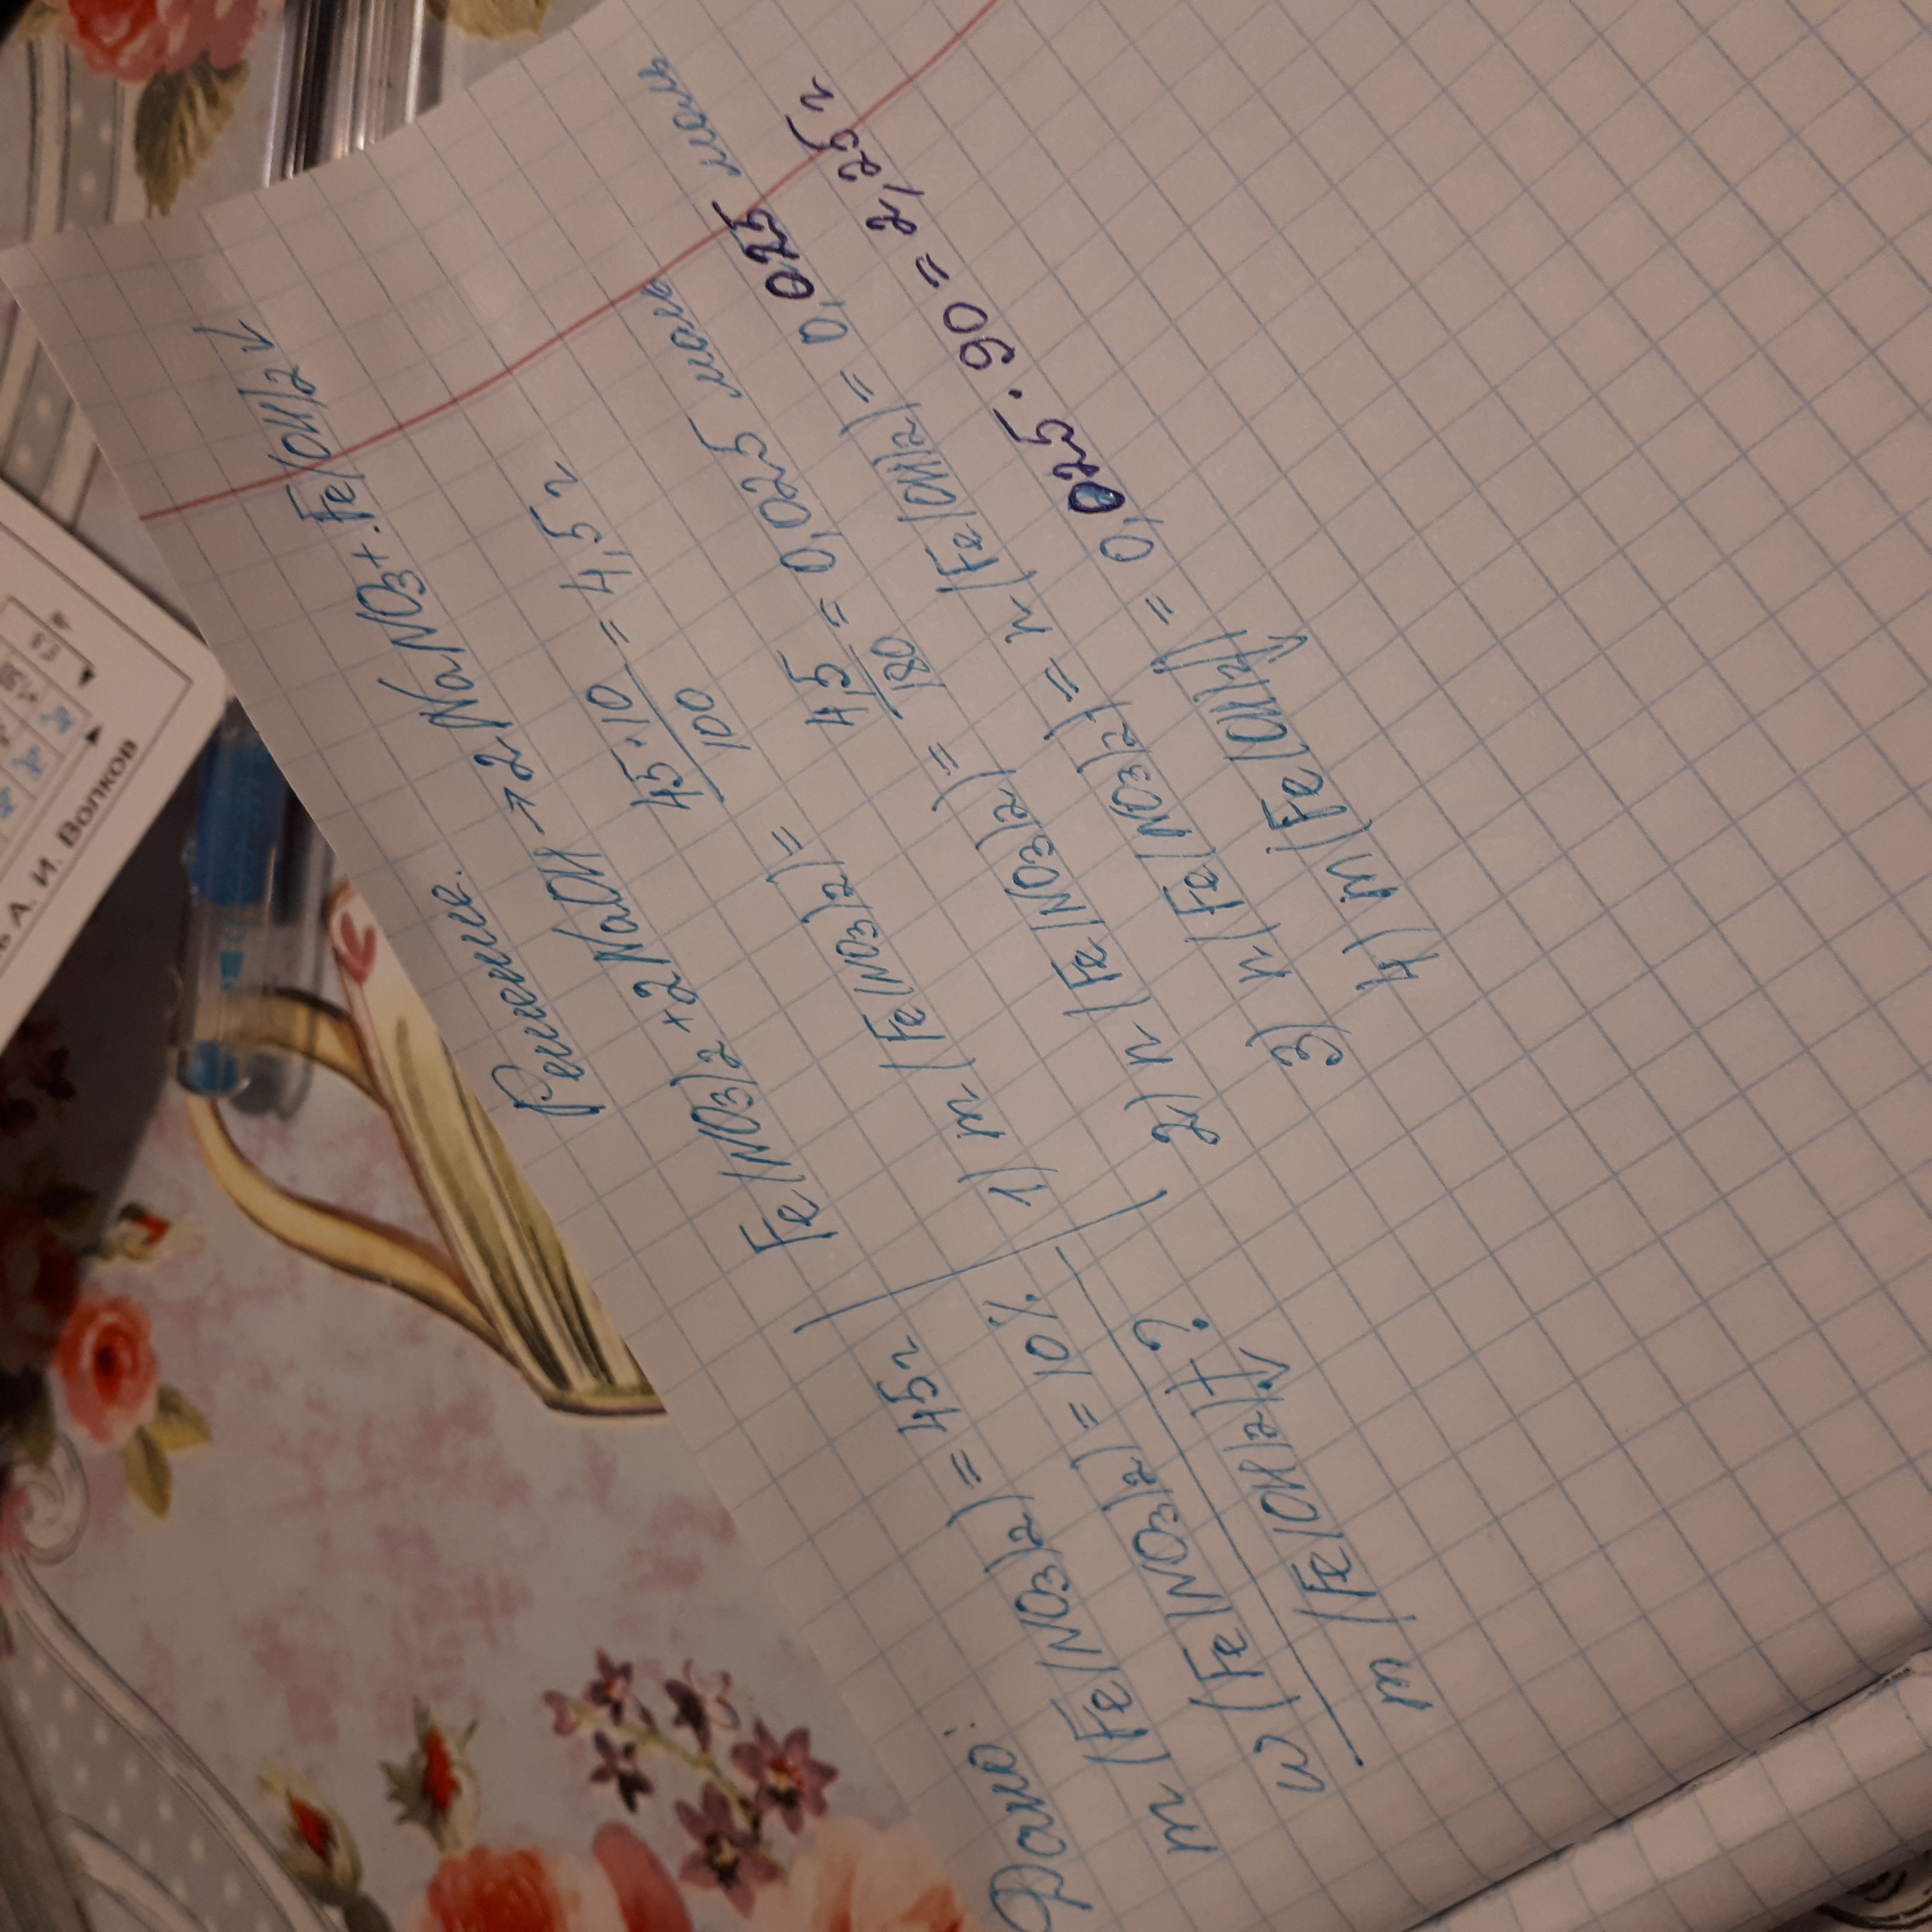 Дано:
m(Fe(NO3)2) = 45г
w(Fe(NO3)2) = 10%
m(Fe(OH)2)↓?
Решение:
Fe(NO3)2 + 2NaOH → 2NaNO3 + Fe(OH)2↓
1) m(Fe(NO3)2) = 45·10/100 = 4,5 г
2) n(Fe(NO3)2) = 4,5/180 = 0,025 моль
3) n(Fe(NO3)2) = n(Fe(OH)2) = 0,025 моль
4) m(Fe(OH)2)↓ = 0,025·90 = 2,25 г
А. И. Волков